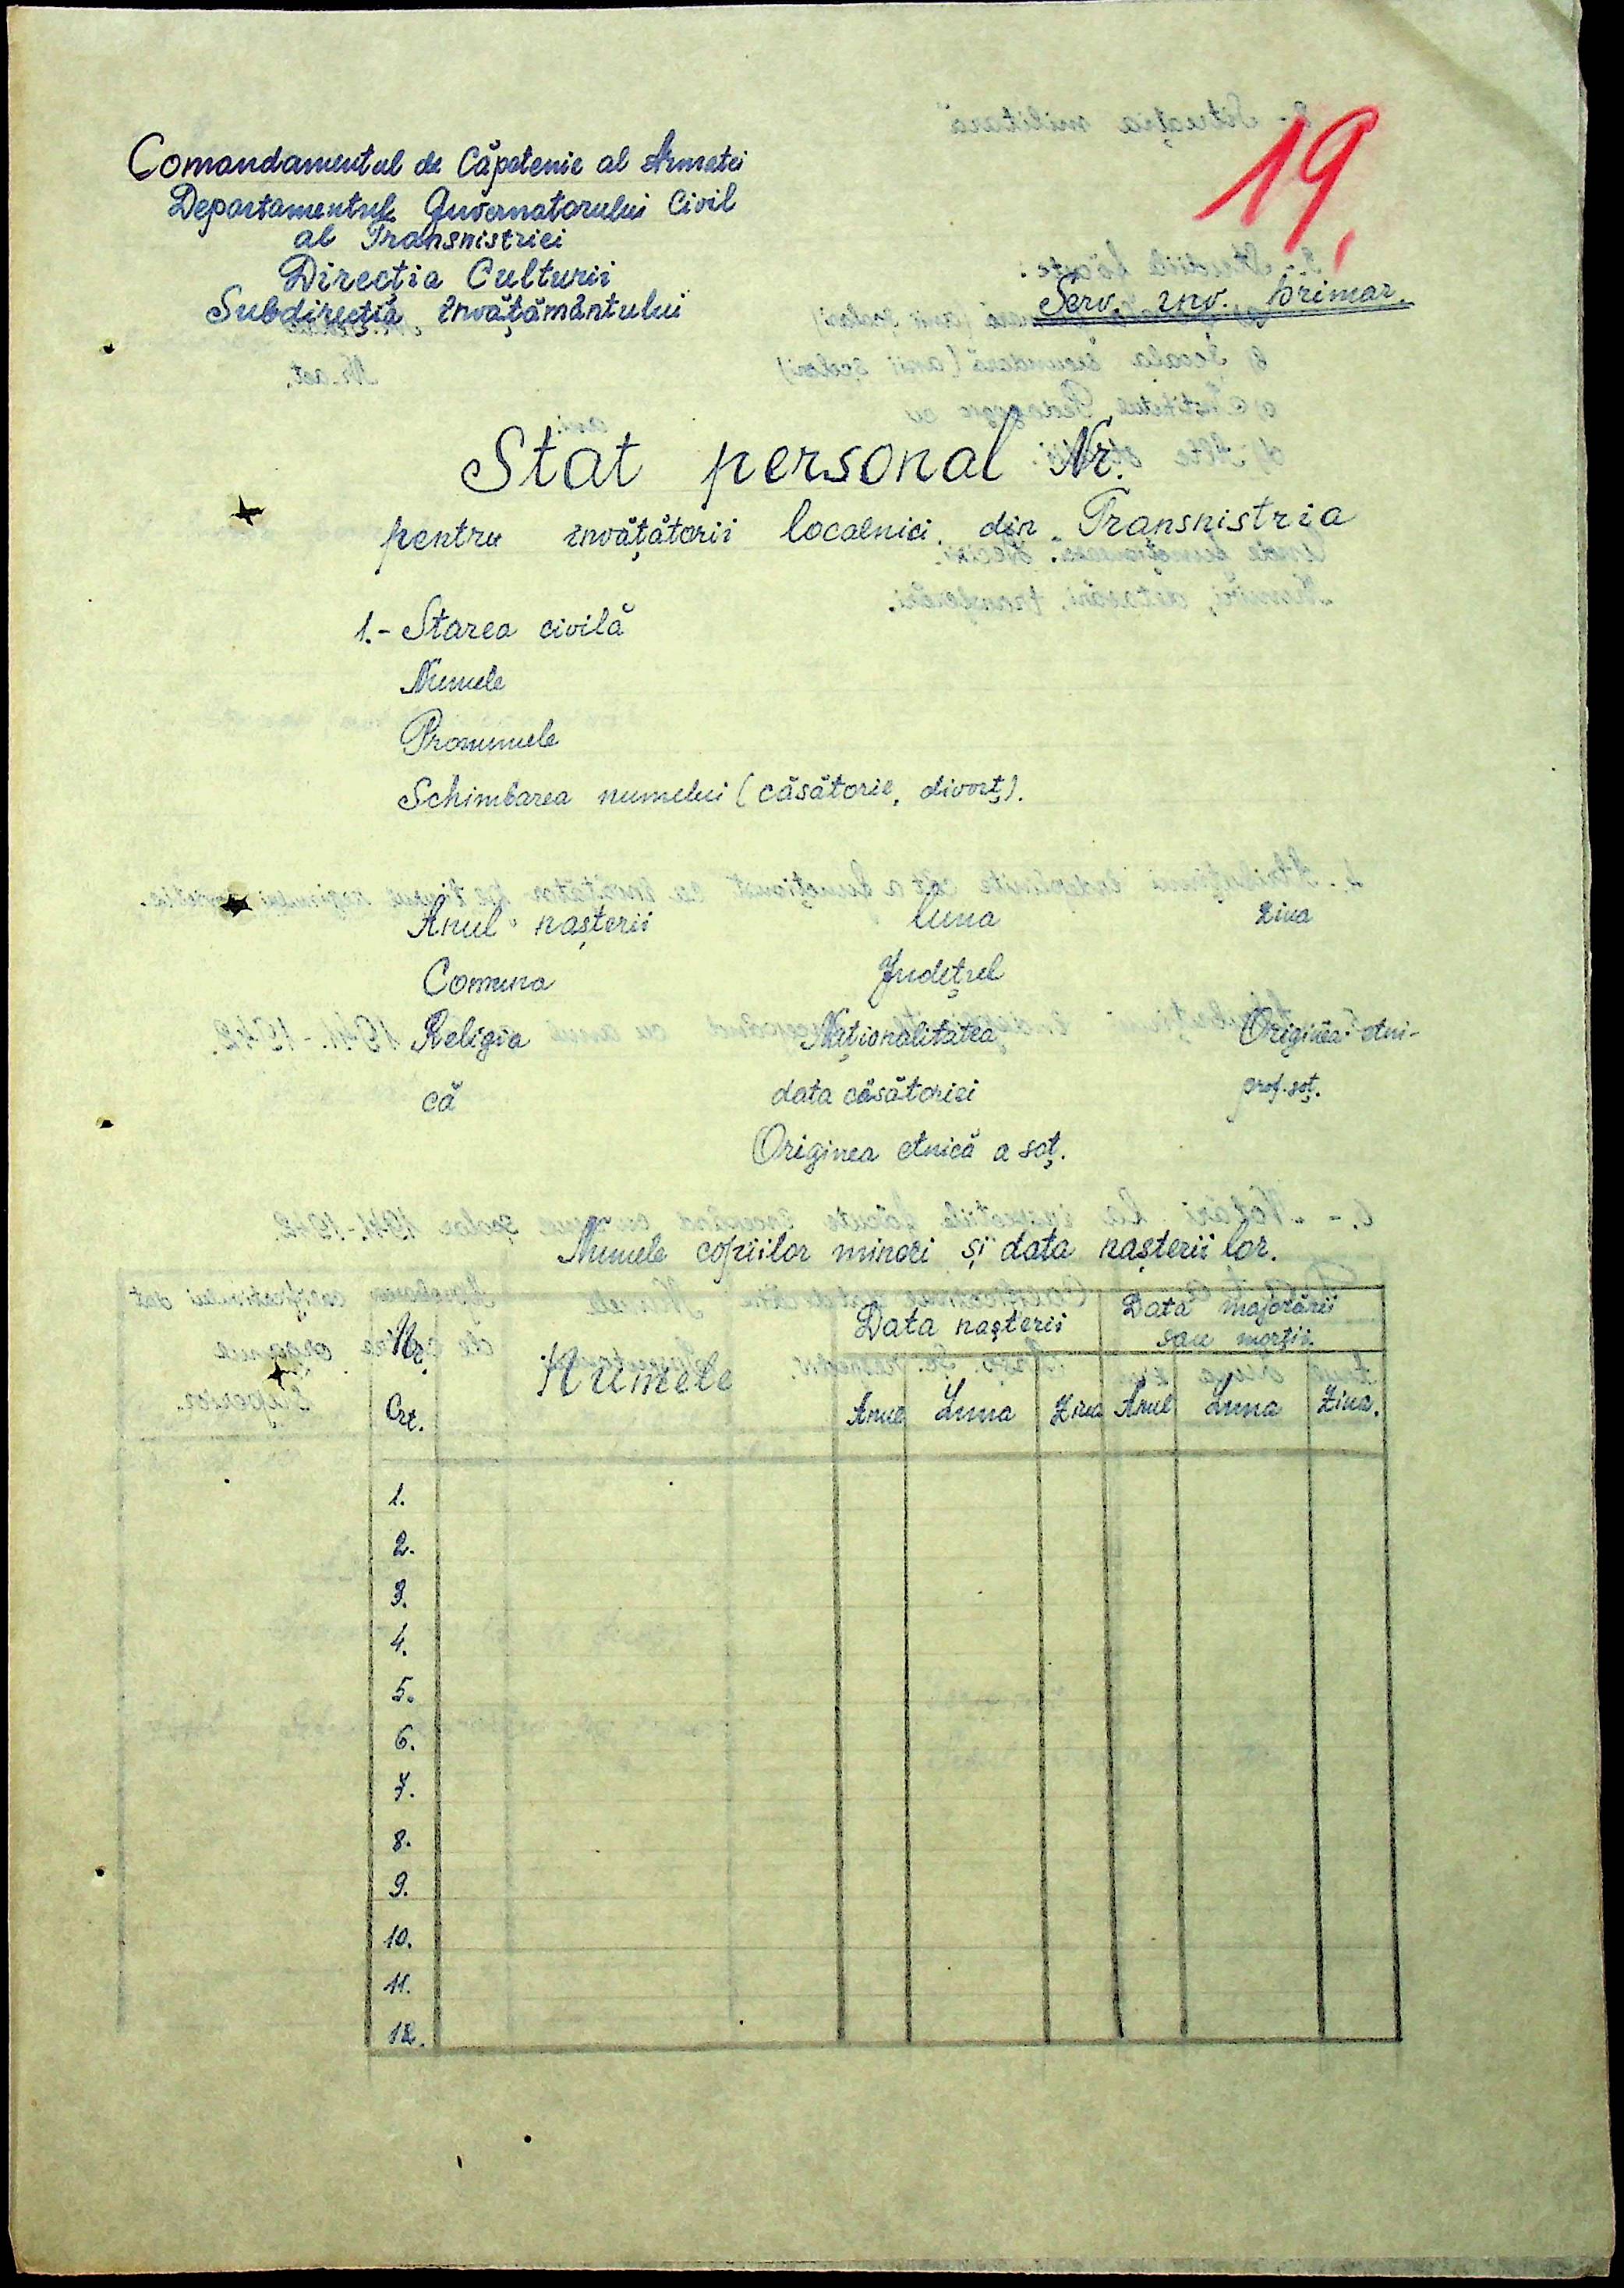 19.
Comandamentul de Căpetenie al Armatei
Departamentul Guvernatorului Civil
al Transnistriei
Direcția Culturii
Subdirecția învățământului
Serv. înv. primar.
Stat personal Nr.
pentru învățătorii localnici din Transnistria
1.- Starea civilă
Numele
Pronumele
Schimbarea numelui (căsătorie, divorț).
Anul nașterii luna ziua
Comuna Județul
Religia Naționalitatea Originea etni-
că data căsătoriei prof. soț.
Originea etnică a soț.
Numele copiilor minori și data nașterii lor.
Nr. Crt. Numele Data nașterii Data majorării
sau morții.
Anul Luna Ziua Anul Luna Ziua.
1.
2.
3.
4.
5.
6.
7.
8.
9.
10.
11.
12.